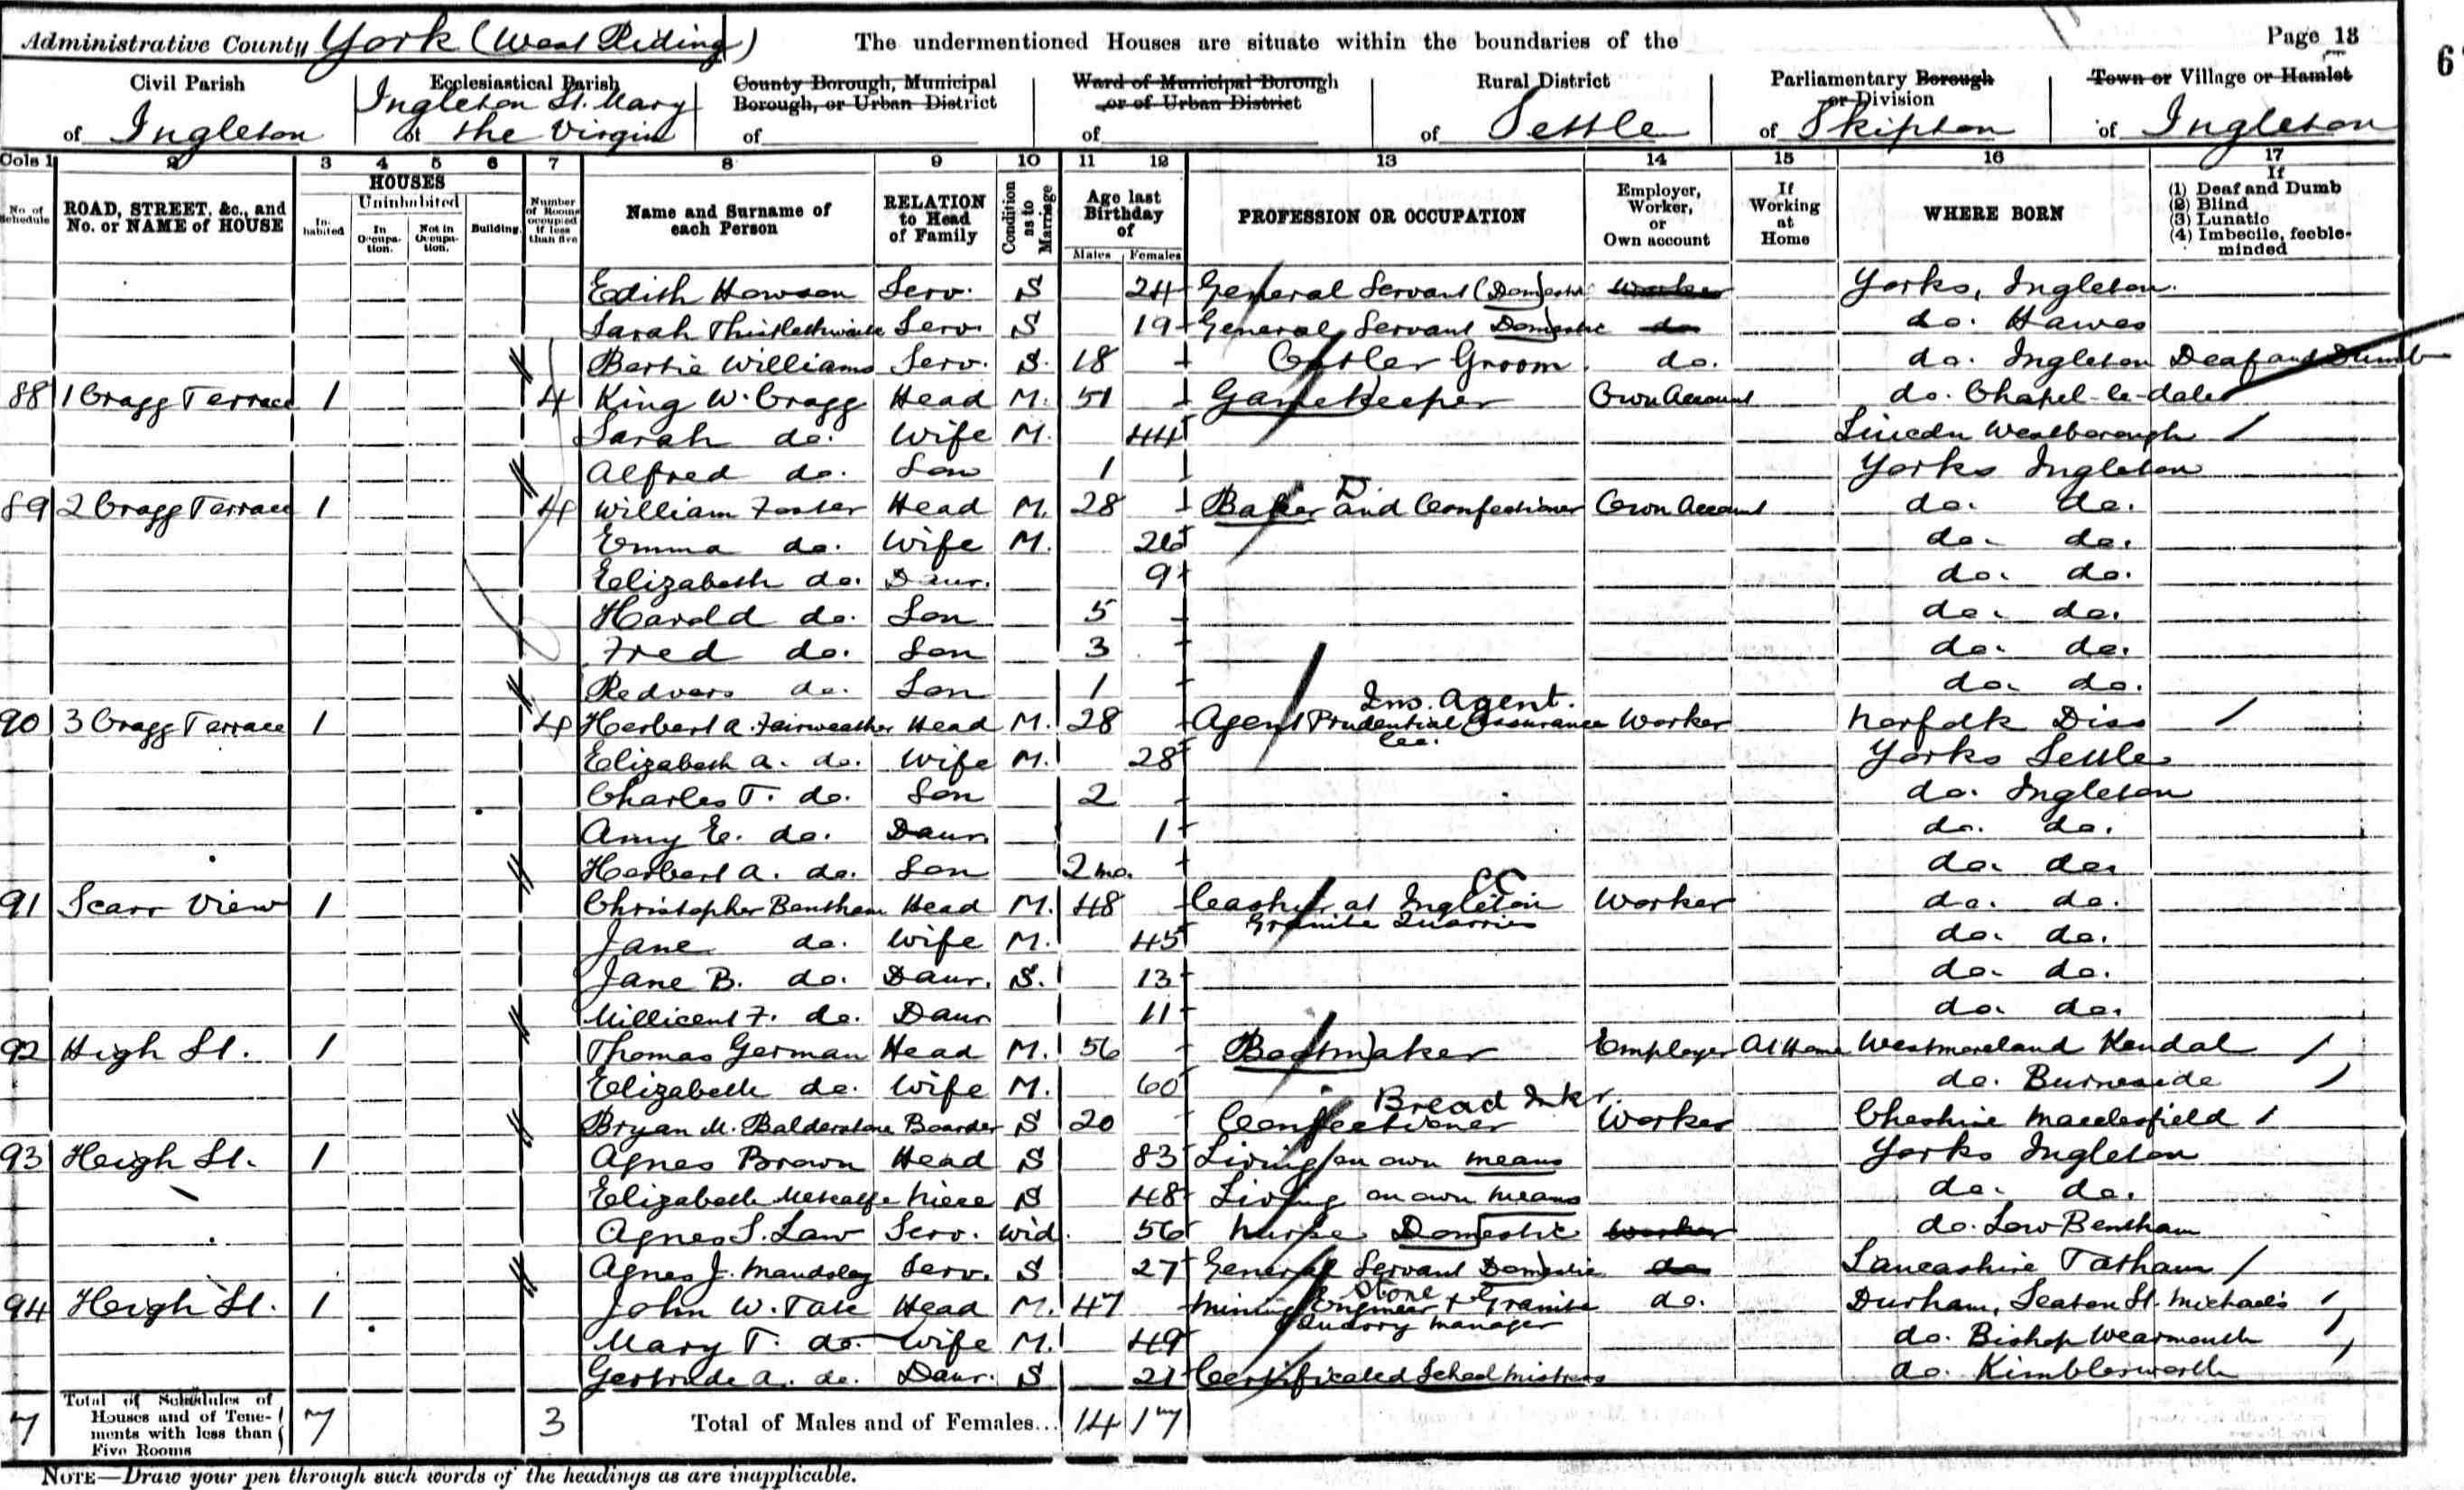 Administrative County York (West Riding) The undermentioned Houses are situate within the boundaries of the Page 13
Civil Parish of Ingleton
Ecclesiastical Parish of Ingleton St. Mary the Virgin
County Borough, Municipal Borough, or Urban District of
Ward of Municipal Borough or of Urban District of
Rural District of Settle
Parliamentary Borough or Division of Skipton
Town or Village or Hamlet of Ingleton
Cols 1 2 3 4 5 6 7 8 9 10 11 12 13 14 15 16 17
No. of Schedule
ROAD, STREET, &c., and No. or NAME of HOUSE
HOUSES
Inhabited
Uninhabited
In Occupation.
Not in Occupation.
Building.
Number of Rooms occupied if less than five
Name and Surname of each Person
RELATION to Head of Family
Condition as to Marriage
Age last Birthday of
Males Females
PROFESSION OR OCCUPATION
Employer, Worker, or Own account
If Working at Home
WHERE BORN
If (1) Deaf and Dumb
(2) Blind
(3) Lunatic
(4) Imbecile, feeble-minded
Edith Howson Serv. S 24 General Servant (Domestic Worker Yorks, Ingleton
Sarah Thistlethwaite Serv. S 19 General Servant Domestic do do. Hawes
Bertie Williams Serv. S. 18 Ostler Groom do. do. Ingleton Deaf and Dumb
88 1 Cragg Terrace 1 4 King W. Cragg Head M. 51 Gamekeeper Own Account do. Chapel-le-dale
Sarah do. Wife M. 44 Lincoln Westborough
Alfred do. Son 1 Yorks Ingleton
89 2 Cragg Terrace 1 4 William Foster Head M. 28 Baker and Confectioner Own Account do. do.
Emma do. Wife M. 26 do. do.
Elizabeth do. Daur. 9 do. do.
Harold do. Son 5 do. do.
Fred do. Son 3 do. do.
Redvers do. Son 1 do. do.
Ins. Agent.
90 3 Cragg Terrace 1 4 Herbert A. Fairweather Head M. 28 Agent Prudential Assurance Coo. Worker Norfolk Diss
Elizabeth A. do. Wife M. 28 Yorks Settle
Charles T. do. Son 2 do. Ingleton
Amy E. do. Daur. 1 do. do.
Herbert A. do. Son 2 mo. do. do.
91 Scarr View 1 Christopher Bentham Head M. 48 Cashier at Ingleton Granite Quarries Worker do. do.
Jane do. Wife M. 45 do. do.
Jane B. do. Daur. S. 13 do. do.
Millicent F. do. Daur 11 do. do.
92 High St. 1 Thomas German Head M. 56 Bootmaker Employer At Home Westmoreland Kendal
Elizabeth do. Wife M. 60 do. Burneside
Bread
Bryan M. Balderstone Boarder S 20 Confectioner Worker Cheshire Macclesfield
93 Heigh St. 1 Agnes Brown Head S 83 Living on own means Yorks Ingleton
Elizabeth Metcalfe Niece S 48 Living on own means do. do.
Agnes S. Law Serv. Wid. 56 Nurse Domestic Worker do. Low Bentham
Agnes J. Mandsley Serv. S 27 General Servant Domestic do Lancashire Tatham
Stone
94 Heigh St. 1 John W. Tate Head M. 47 Mining Engineer & Granite Quarry Manager do. Durham, Seaton St. Michaels
Mary T. do. Wife M. 49 do. Bishop Wearmouth
Gertrude A. do. Daur. S 21 Certificated School Mistress do. Kimblesworth
7 Total of Schedules of Houses and of Tenements with less than Five Rooms 7 3 Total of Males and of Females... 14 17
NOTE—Draw your pen through such words of the headings as are inapplicable.